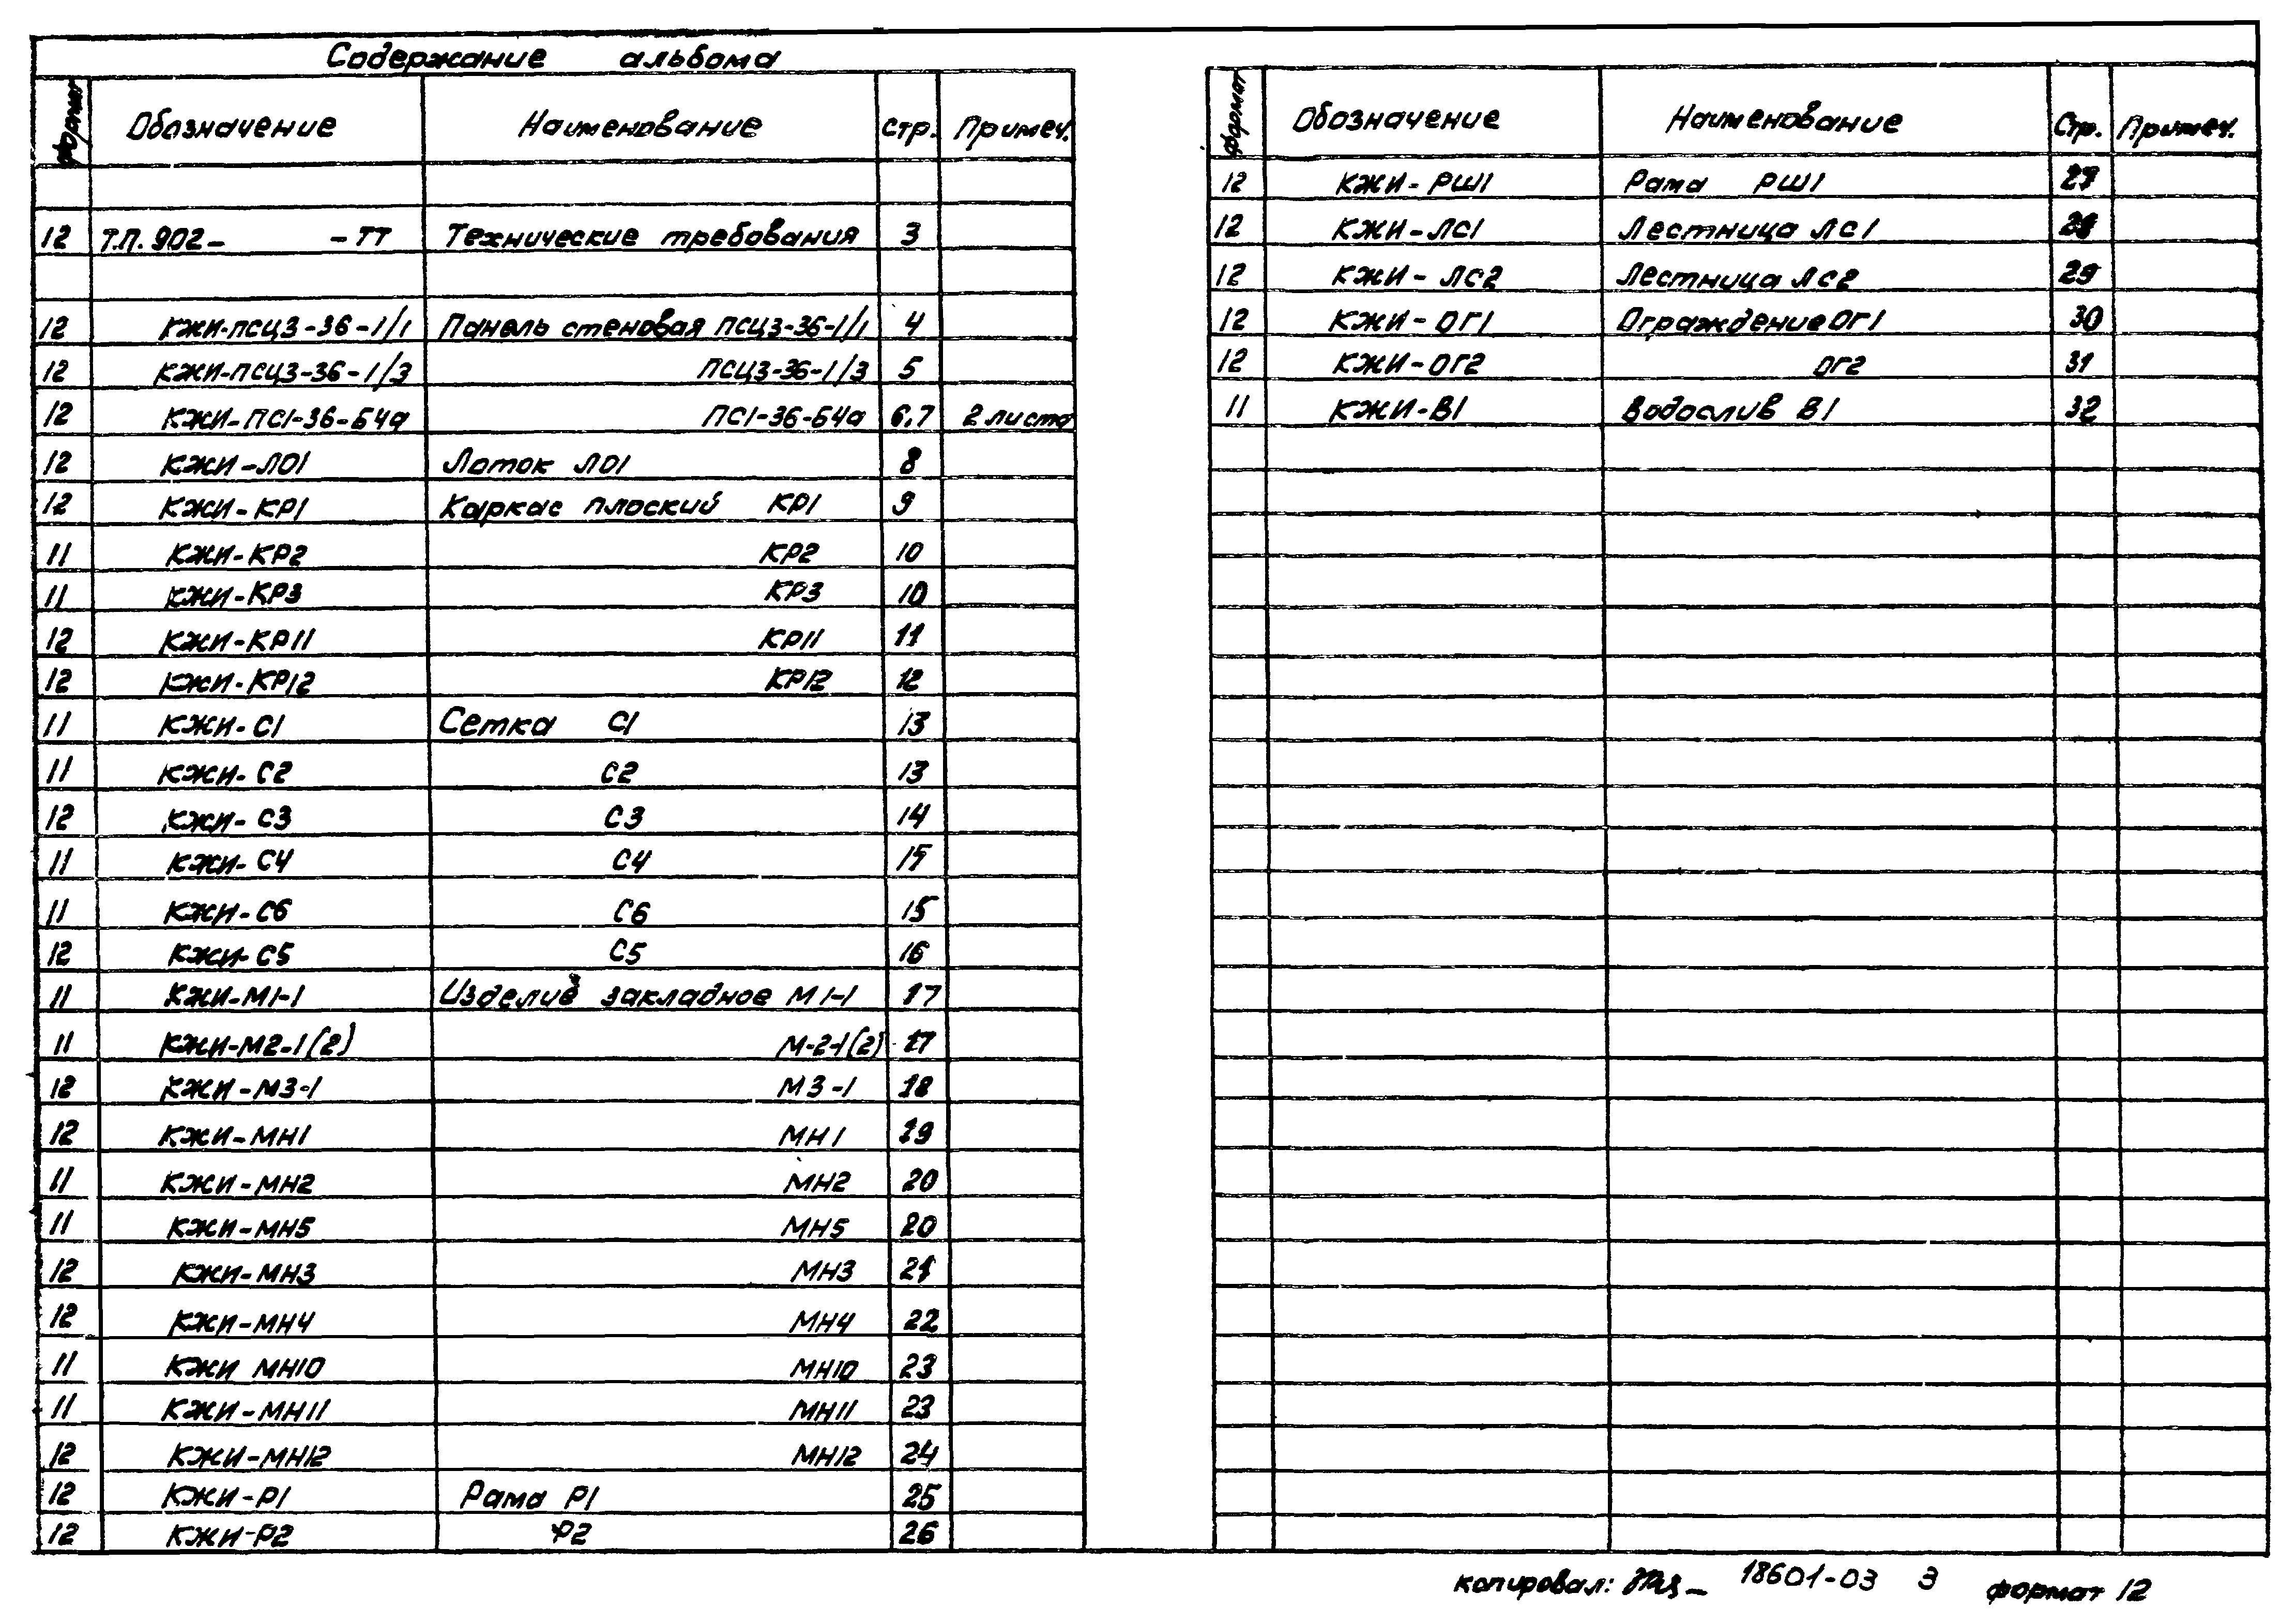 Содержание альбома
формат Обозначение Наименование стр. Примеч.
12 Т.П. 902- -ТТ Технические требования 3
12 КЖИ-ПСЦ3-36-1/1 Панель стеновая ПСЦ3-36-1/1 4
12 КЖИ-ПСЦ3-36-1/3 ПСЦ3-36-1/3 5
12 КЖИ-ПС1-36-Б4а ПС1-36-Б4а 6,7 2 листа
12 КЖИ-ЛО1 Лоток ЛО1 8
12 КЖИ-КР1 Каркас плоский КР1 9
11 КЖИ-КР2 КР2 10
11 КЖИ-КР3 КР3 10
12 КЖИ-КР11 КР11 11
12 КЖИ-КР12 КР12 12
11 КЖИ-С1 Сетка С1 13
11 КЖИ-С2 С2 13
12 КЖИ-С3 С3 14
11 КЖИ-С4 С4 15
11 КЖИ-С6 С6 15
12 КЖИ-С5 С5 16
11 КЖИ-М1-1 Изделие закладное М1-1 17
11 КЖИ-М2-1(2) М-2-1(2) 17
12 КЖИ-М3-1 М3-1 18
12 КЖИ-МН1 МН1 19
11 КЖИ-МН2 МН2 20
11 КЖИ-МН5 МН5 20
12 КЖИ-МН3 МН3 21
12 КЖИ-МН4 МН4 22
11 КЖИ МН10 МН10 23
11 КЖИ-МН11 МН11 23
12 КЖИ-МН12 МН12 24
12 КЖИ-Р1 Рама Р1 25
12 КЖИ-Р2 Р2 26
формат Обозначение Наименование Стр. Примеч.
12 КЖИ-РШ1 Рама РШ1 27
12 КЖИ-ЛС1 Лестница ЛС1 28
12 КЖИ-ЛС2 Лестница ЛС2 29
12 КЖИ-ОГ1 Ограждение ОГ1 30
12 КЖИ-ОГ2 ОГ2 31
11 КЖИ-В1 Водослив В1 32
копировал: 18601-03 3 формат 12